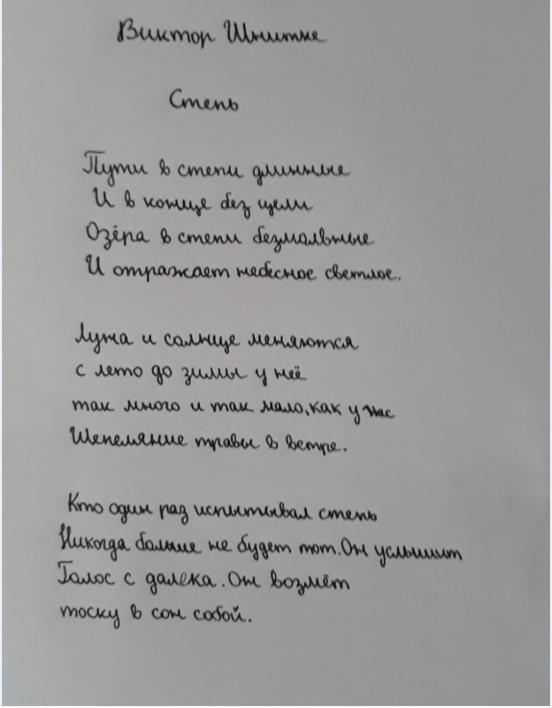 Виктор Шнитке
Степь
Пути в степи длинные
И в конце без цели
Озёра в степи безмолвные
И отражает небесное светлое.
Луна и солнце меняются
с лето до зимы у неё
так много и так мало, как у нас
Шепеляние травы в ветре.
Кто один раз испытывал степь
Никогда больше не будет тот. Он услышит
Голос с далека. Он возмёт
тоску в сон собой.